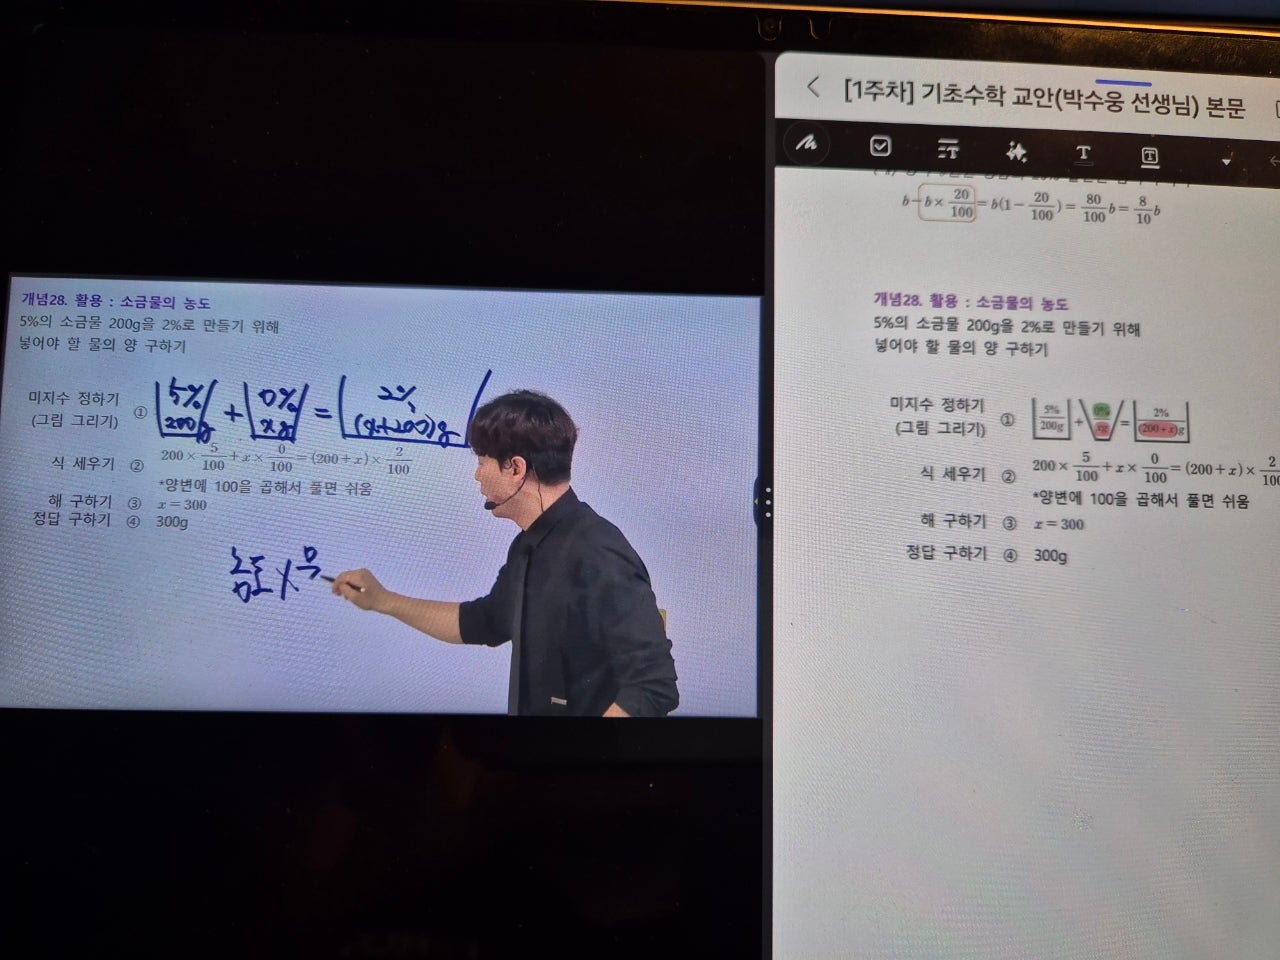 개념28. 활용 : 소금물의 농도
5%의 소금물 200g을 2%로 만들기 위해
넣어야 할 물의 양 구하기
미지수 정하기
(그림 그리기) ①
5% 0% 2%
200g + xg = (x+200)g
식 세우기 ② 200×5/100+x×0/100=(200+x)×2/100
*양변에 100을 곱해서 풀면 쉬움
해 구하기 ③ x=300
정답 구하기 ④ 300g
농도 ×
[1주차] 기초수학 교안(박수웅 선생님) 본문
T T T
b-b×20/100=b(1-20/100)=80/100b=8/10b
개념28. 활용 : 소금물의 농도
5%의 소금물 200g을 2%로 만들기 위해
넣어야 할 물의 양 구하기
미지수 정하기
(그림 그리기) ①
5% 0% 2%
200g + xg = (200+x)g
식 세우기 ② 200×5/100+x×0/100=(200+x)×2/100
*양변에 100을 곱해서 풀면 쉬움
해 구하기 ③ x=300
정답 구하기 ④ 300g